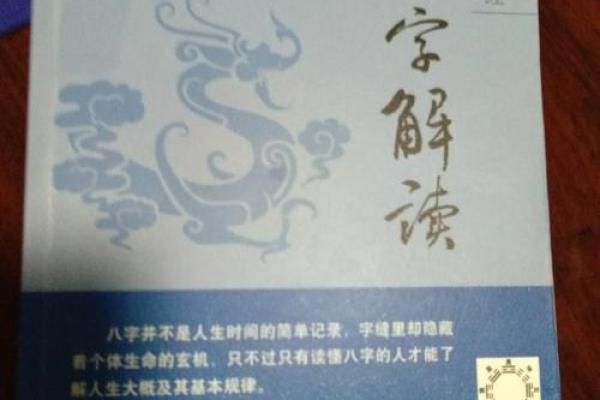 字解读
八字并不是人生时间的简单记录，字缝里却隐藏
着个体生命的玄机，只不过只有读懂八字的人才能了
解人生大概及其基本规律。